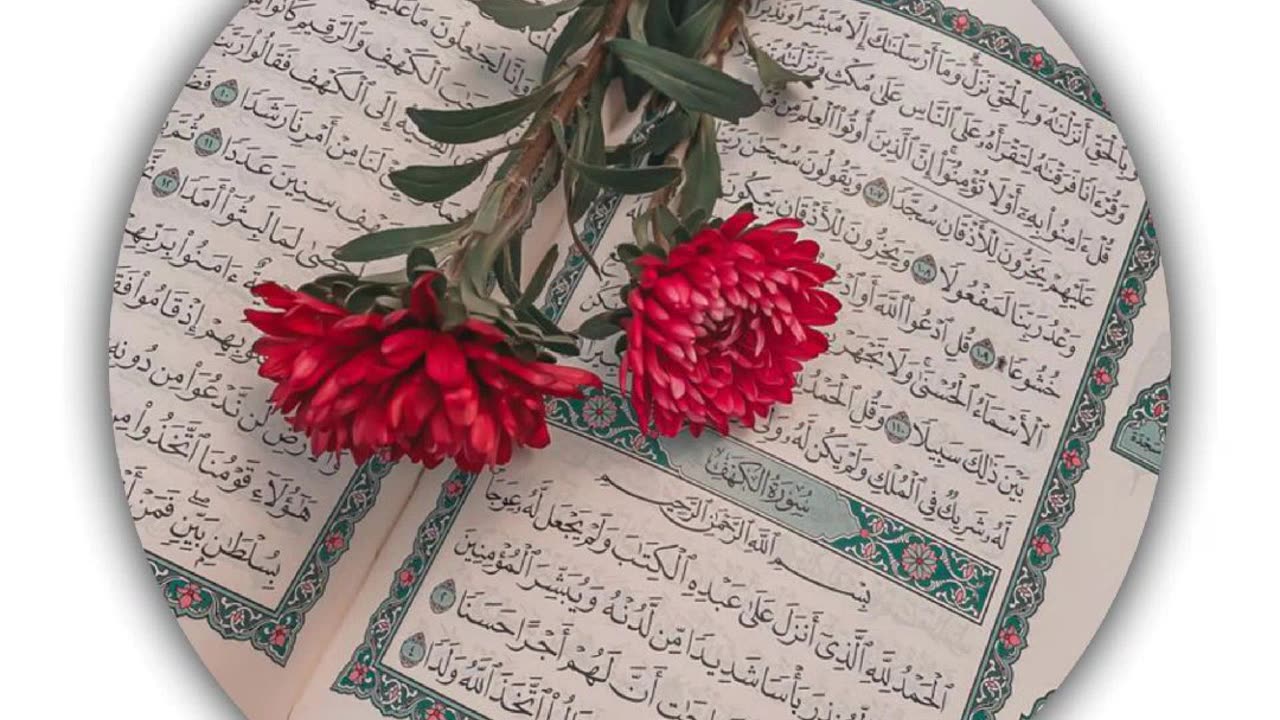 وَبِٱلْحَقِّ أَنزَلْنَٰهُ وَبِٱلْحَقِّ نَزَلَ ۗ وَمَآ أَرْسَلْنَٰكَ إِلَّا مُبَشِّرًا وَنَذِيرًا
وَقُرْءَانًا فَرَقْنَٰهُ لِتَقْرَأَهُۥ عَلَى ٱلنَّاسِ عَلَىٰ مُكْثٍ وَنَزَّلْنَٰهُ
قُلْ ءَامِنُوا۟ بِهِۦٓ أَوْ لَا تُؤْمِنُوٓا۟ ۚ إِنَّ ٱلَّذِينَ أُوتُوا۟ ٱلْعِلْمَ مِن
عَلَيْهِمْ يَخِرُّونَ لِلْأَذْقَانِ سُجَّدًا ١٠٧ وَيَقُولُونَ سُبْحَٰنَ
وَعْدُ رَبِّنَا لَمَفْعُولًا ١٠٨ وَيَخِرُّونَ لِلْأَذْقَانِ يَبْكُونَ
خُشُوعًا ١٠٩ قُلِ ٱدْعُوا۟ ٱللَّهَ أَوِ
ٱلْأَسْمَآءُ ٱلْحُسْنَىٰ ۚ وَلَا تَجْهَرْ
بَيْنَ ذَٰلِكَ سَبِيلًا ١١٠ وَقُلِ ٱلْحَمْدُ
لَّهُۥ شَرِيكٌ فِى ٱلْمُلْكِ وَلَمْ يَكُن لَّهُۥ
سُورَةُ الْكَهْفِ
بِسْمِ ٱللَّهِ ٱلرَّحْمَٰنِ ٱلرَّحِيمِ
ٱلْحَمْدُ لِلَّهِ ٱلَّذِىٓ أَنزَلَ عَلَىٰ عَبْدِهِ ٱلْكِتَٰبَ وَلَمْ يَجْعَل لَّهُۥ عِوَجَا
بَأْسًا شَدِيدًا مِّن لَّدُنْهُ وَيُبَشِّرَ ٱلْمُؤْمِنِينَ
أَنَّ لَهُمْ أَجْرًا حَسَنًا ٢
ٱتَّخَذَ ٱللَّهُ وَلَدًا ٤
سجدة
وَإِنَّا لَجَٰعِلُونَ مَا عَلَيْهَا
ٱلْكَهْفِ وَٱلرَّقِيمِ كَانُوا۟
إِلَى ٱلْكَهْفِ فَقَالُوا۟ رَبَّنَآ
لَنَا مِنْ أَمْرِنَا رَشَدًا ١٠
سِنِينَ عَدَدًا ١١ ثُمَّ
أَحْصَىٰ لِمَا لَبِثُوٓا۟ أَمَدًا ١٢
ءَامَنُوا۟ بِرَبِّهِمْ
إِذْ قَامُوا۟ فَقَالُوا۟
لَن نَّدْعُوَا۟ مِن دُونِهِۦٓ
هَٰٓؤُلَآءِ قَوْمُنَا ٱتَّخَذُوا۟ مِن
بِسُلْطَٰنٍۭ بَيِّنٍ ۖ فَمَنْ